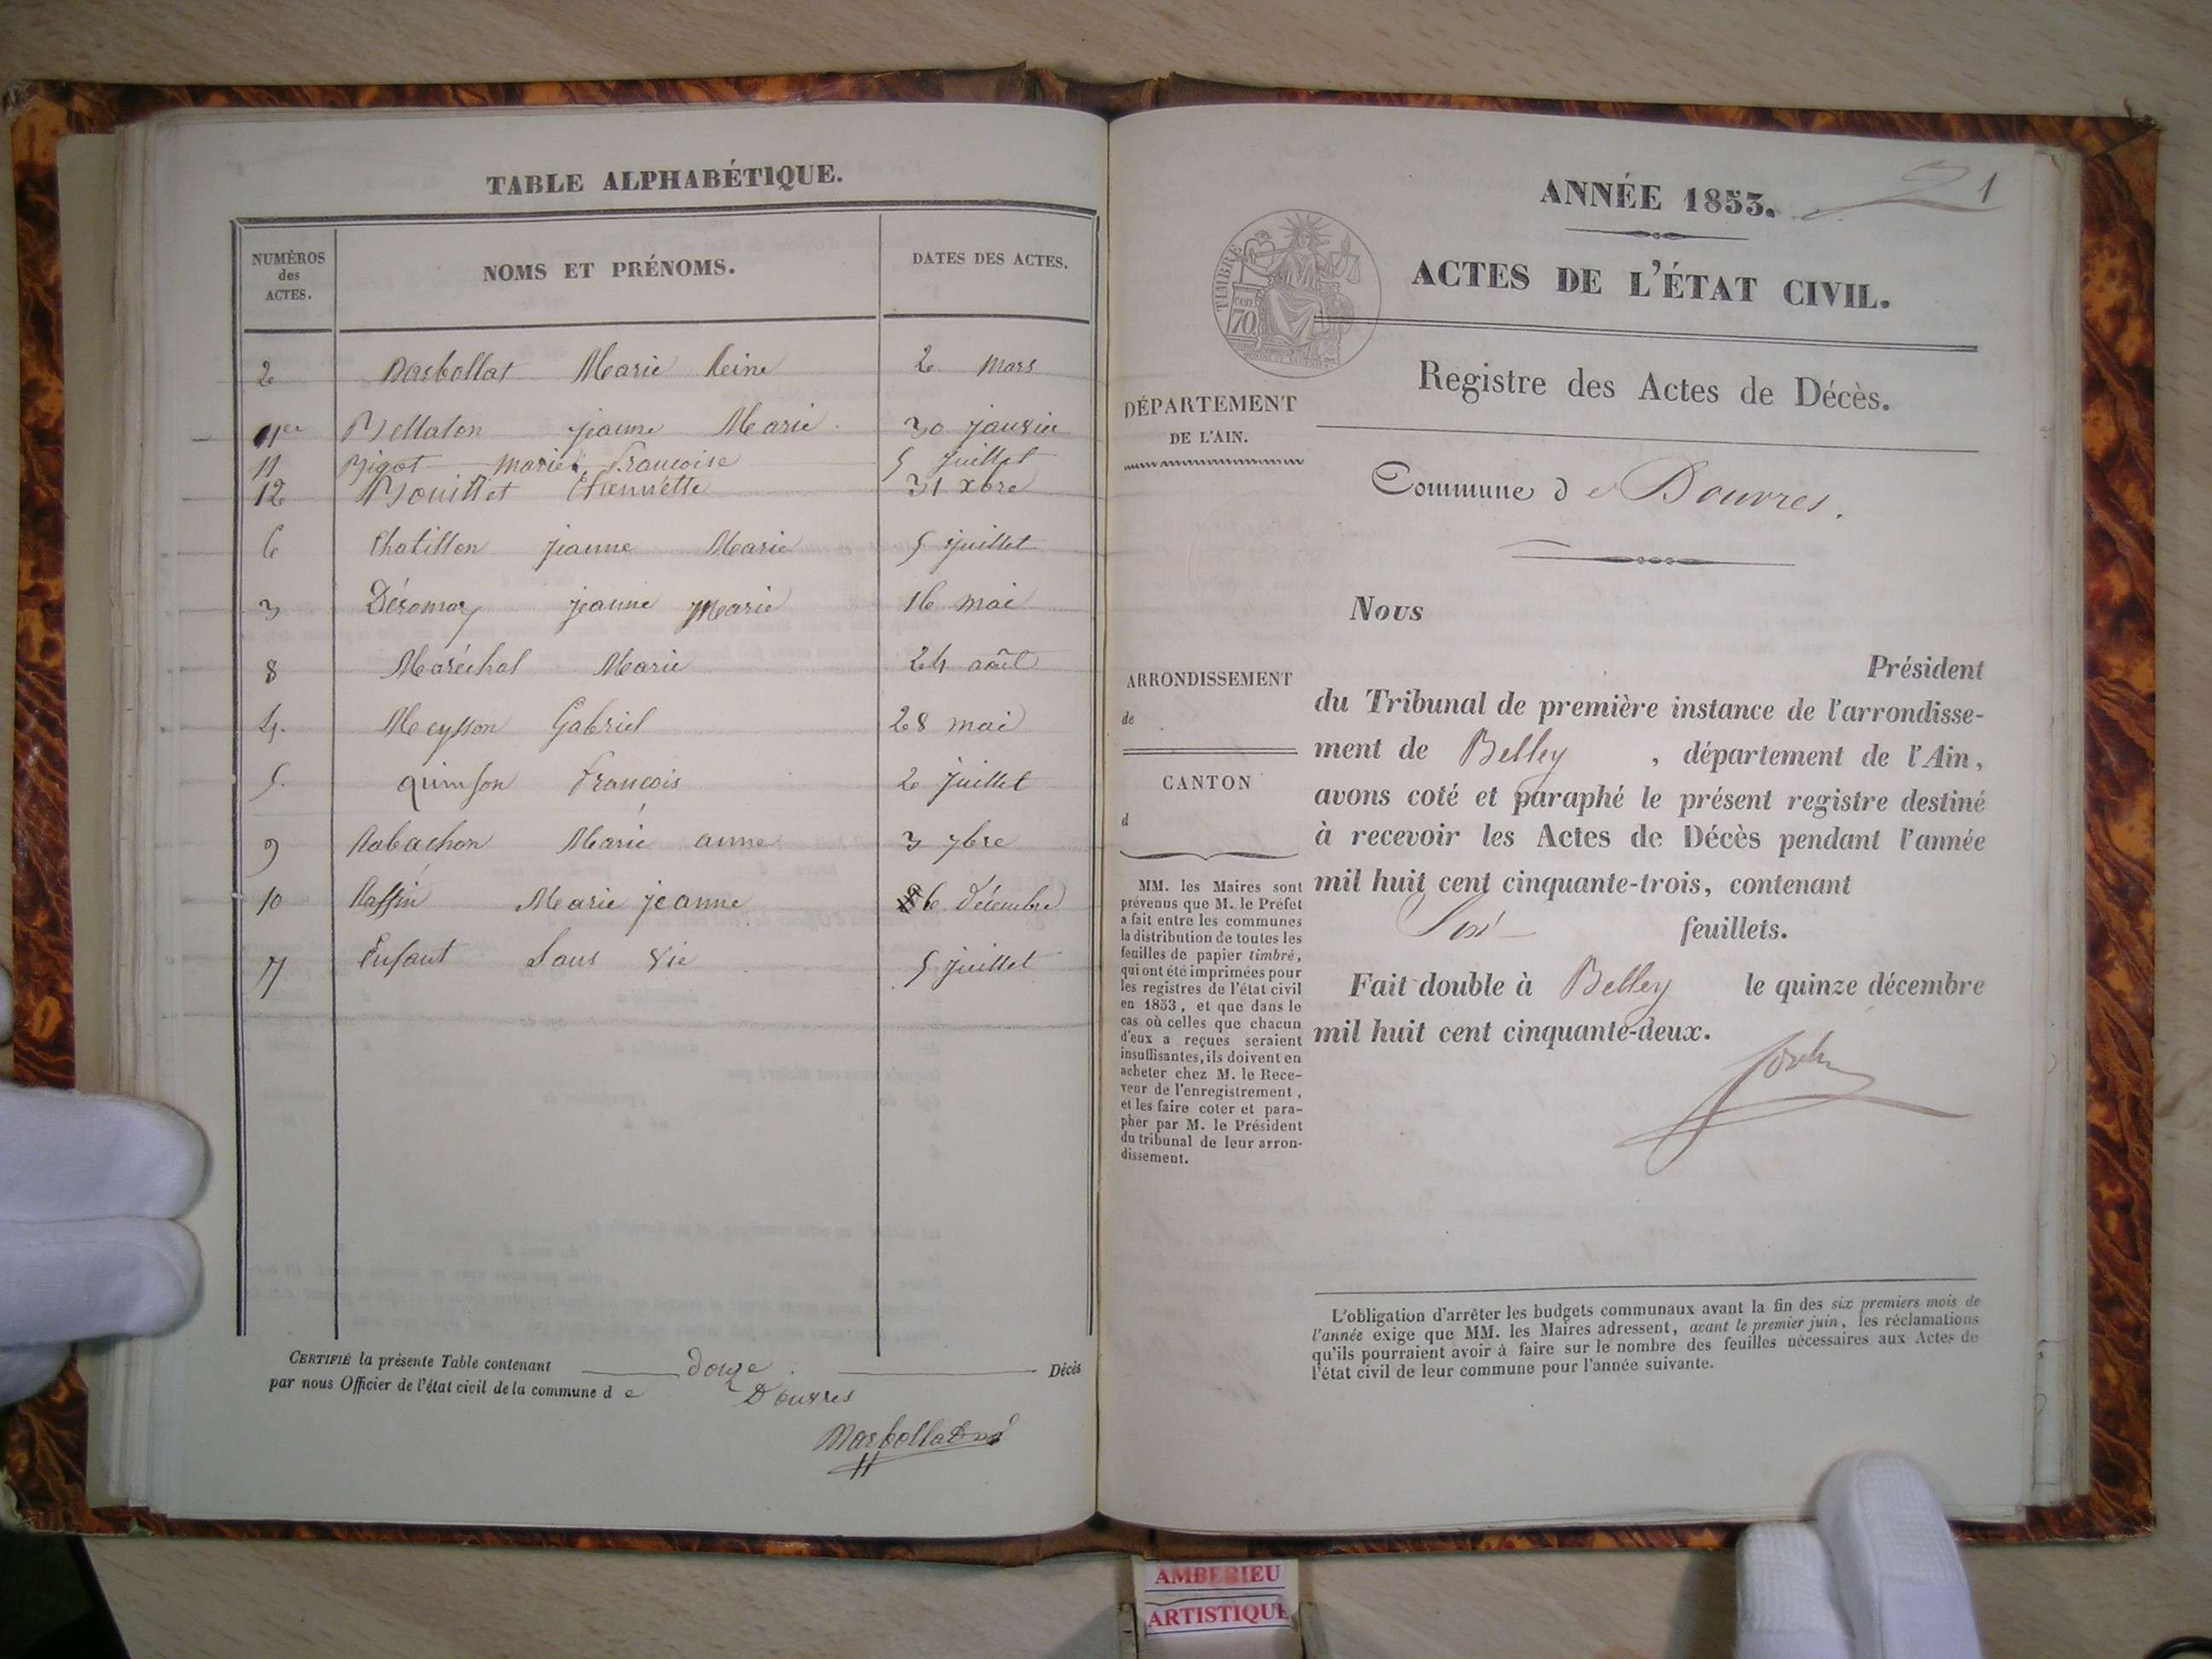 TABLE ALPHABÉTIQUE.
NUMÉROS des ACTES. NOMS ET PRÉNOMS. DATES DES ACTES.
2 Marie Reine 2 mars
1er Bellaton jeanne Marie 30 janvier
11 Bigot marie francoise 5 juillet
12 Bouillet Etiennette 31 xbre
6 Chatillon jeanne Marie 5 juillet
3 jeanne Marie 16 mai
8 Maréchal Marie 24 août
4. Meysson Gabriel 28 mai
5. quinson francois 2 juillet
9 Rabachon Marie anne 3 7bre
10 Raffin Marie jeanne 6 décembre
7 Enfant Sans vie 5 juillet
CERTIFIÉ la présente Table contenant douze Décès
par nous Officier de l'état civil de la commune d e Douvres
ANNÉE 1853. 1
TIMBRE
cen
70
ACTES DE L'ÉTAT CIVIL.
Registre des Actes de Décès.
DÉPARTEMENT
DE L'AIN.
Commune d e Douvres.
ARRONDISSEMENT
de
CANTON
d
MM. les Maires sont
prévenus que M. le Préfet
a fait entre les communes
la distribution de toutes les
feuilles de papier timbré,
qui ont été imprimées pour
les registres de l'état civil
en 1853, et que dans le
cas où celles que chacun
d'eux a reçues seraient
insuffisantes, ils doivent en
acheter chez M. le Rece-
veur de l'enregistrement,
et les faire coter et para-
pher par M. le Président
du tribunal de leur arron-
dissement.
Nous
Président
du Tribunal de première instance de l'arrondisse-
ment de Belley , département de l'Ain,
avons coté et paraphé le présent registre destiné
à recevoir les Actes de Décès pendant l'année
mil huit cent cinquante-trois, contenant
Six feuillets.
Fait double à Belley le quinze décembre
mil huit cent cinquante-deux.
L'obligation d'arrêter les budgets communaux avant la fin des six premiers mois de
l'année exige que MM. les Maires adressent, avant le premier juin, les réclamations
qu'ils pourraient avoir à faire sur le nombre des feuilles nécessaires aux Actes de
l'état civil de leur commune pour l'année suivante.
AMBERIEU
ARTISTIQUE